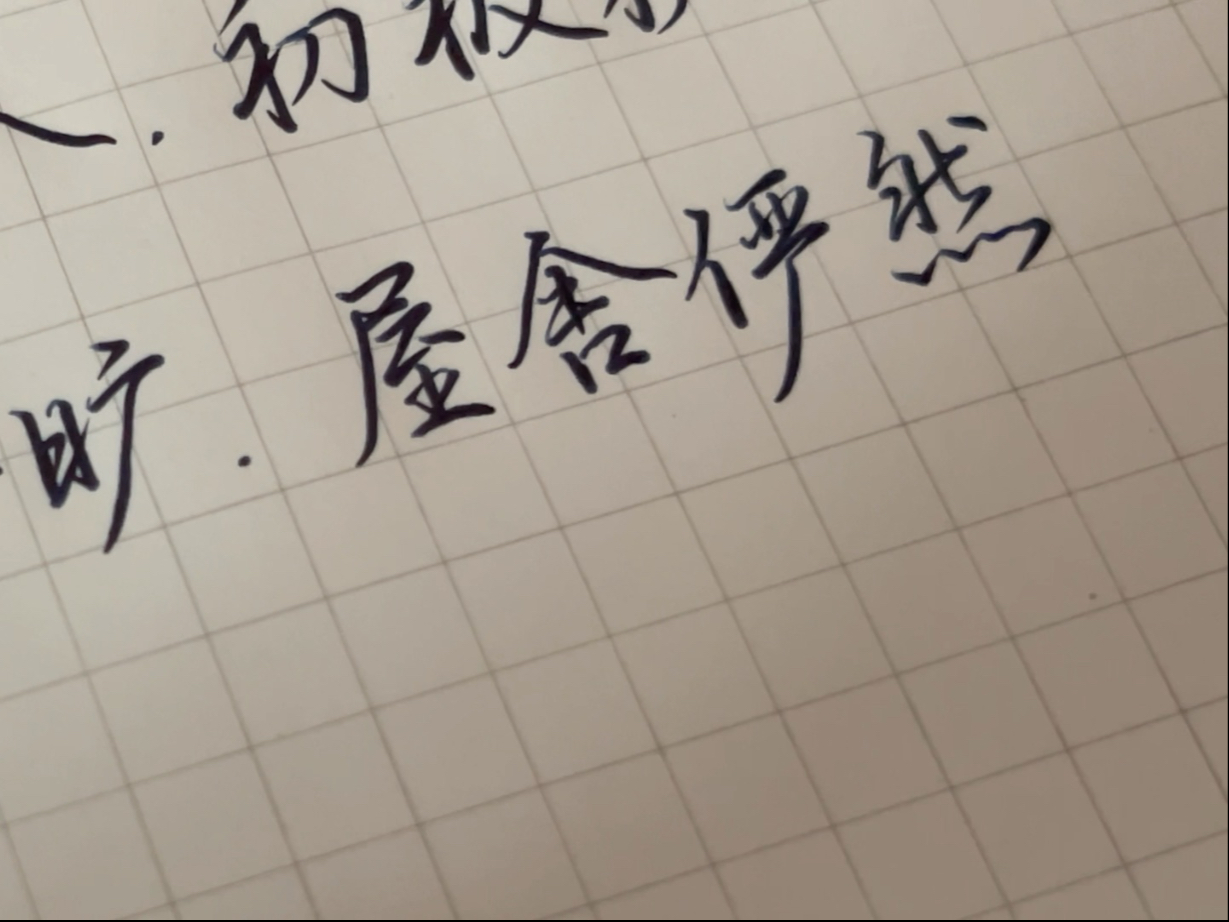 人.初极
旷.屋舍俨然